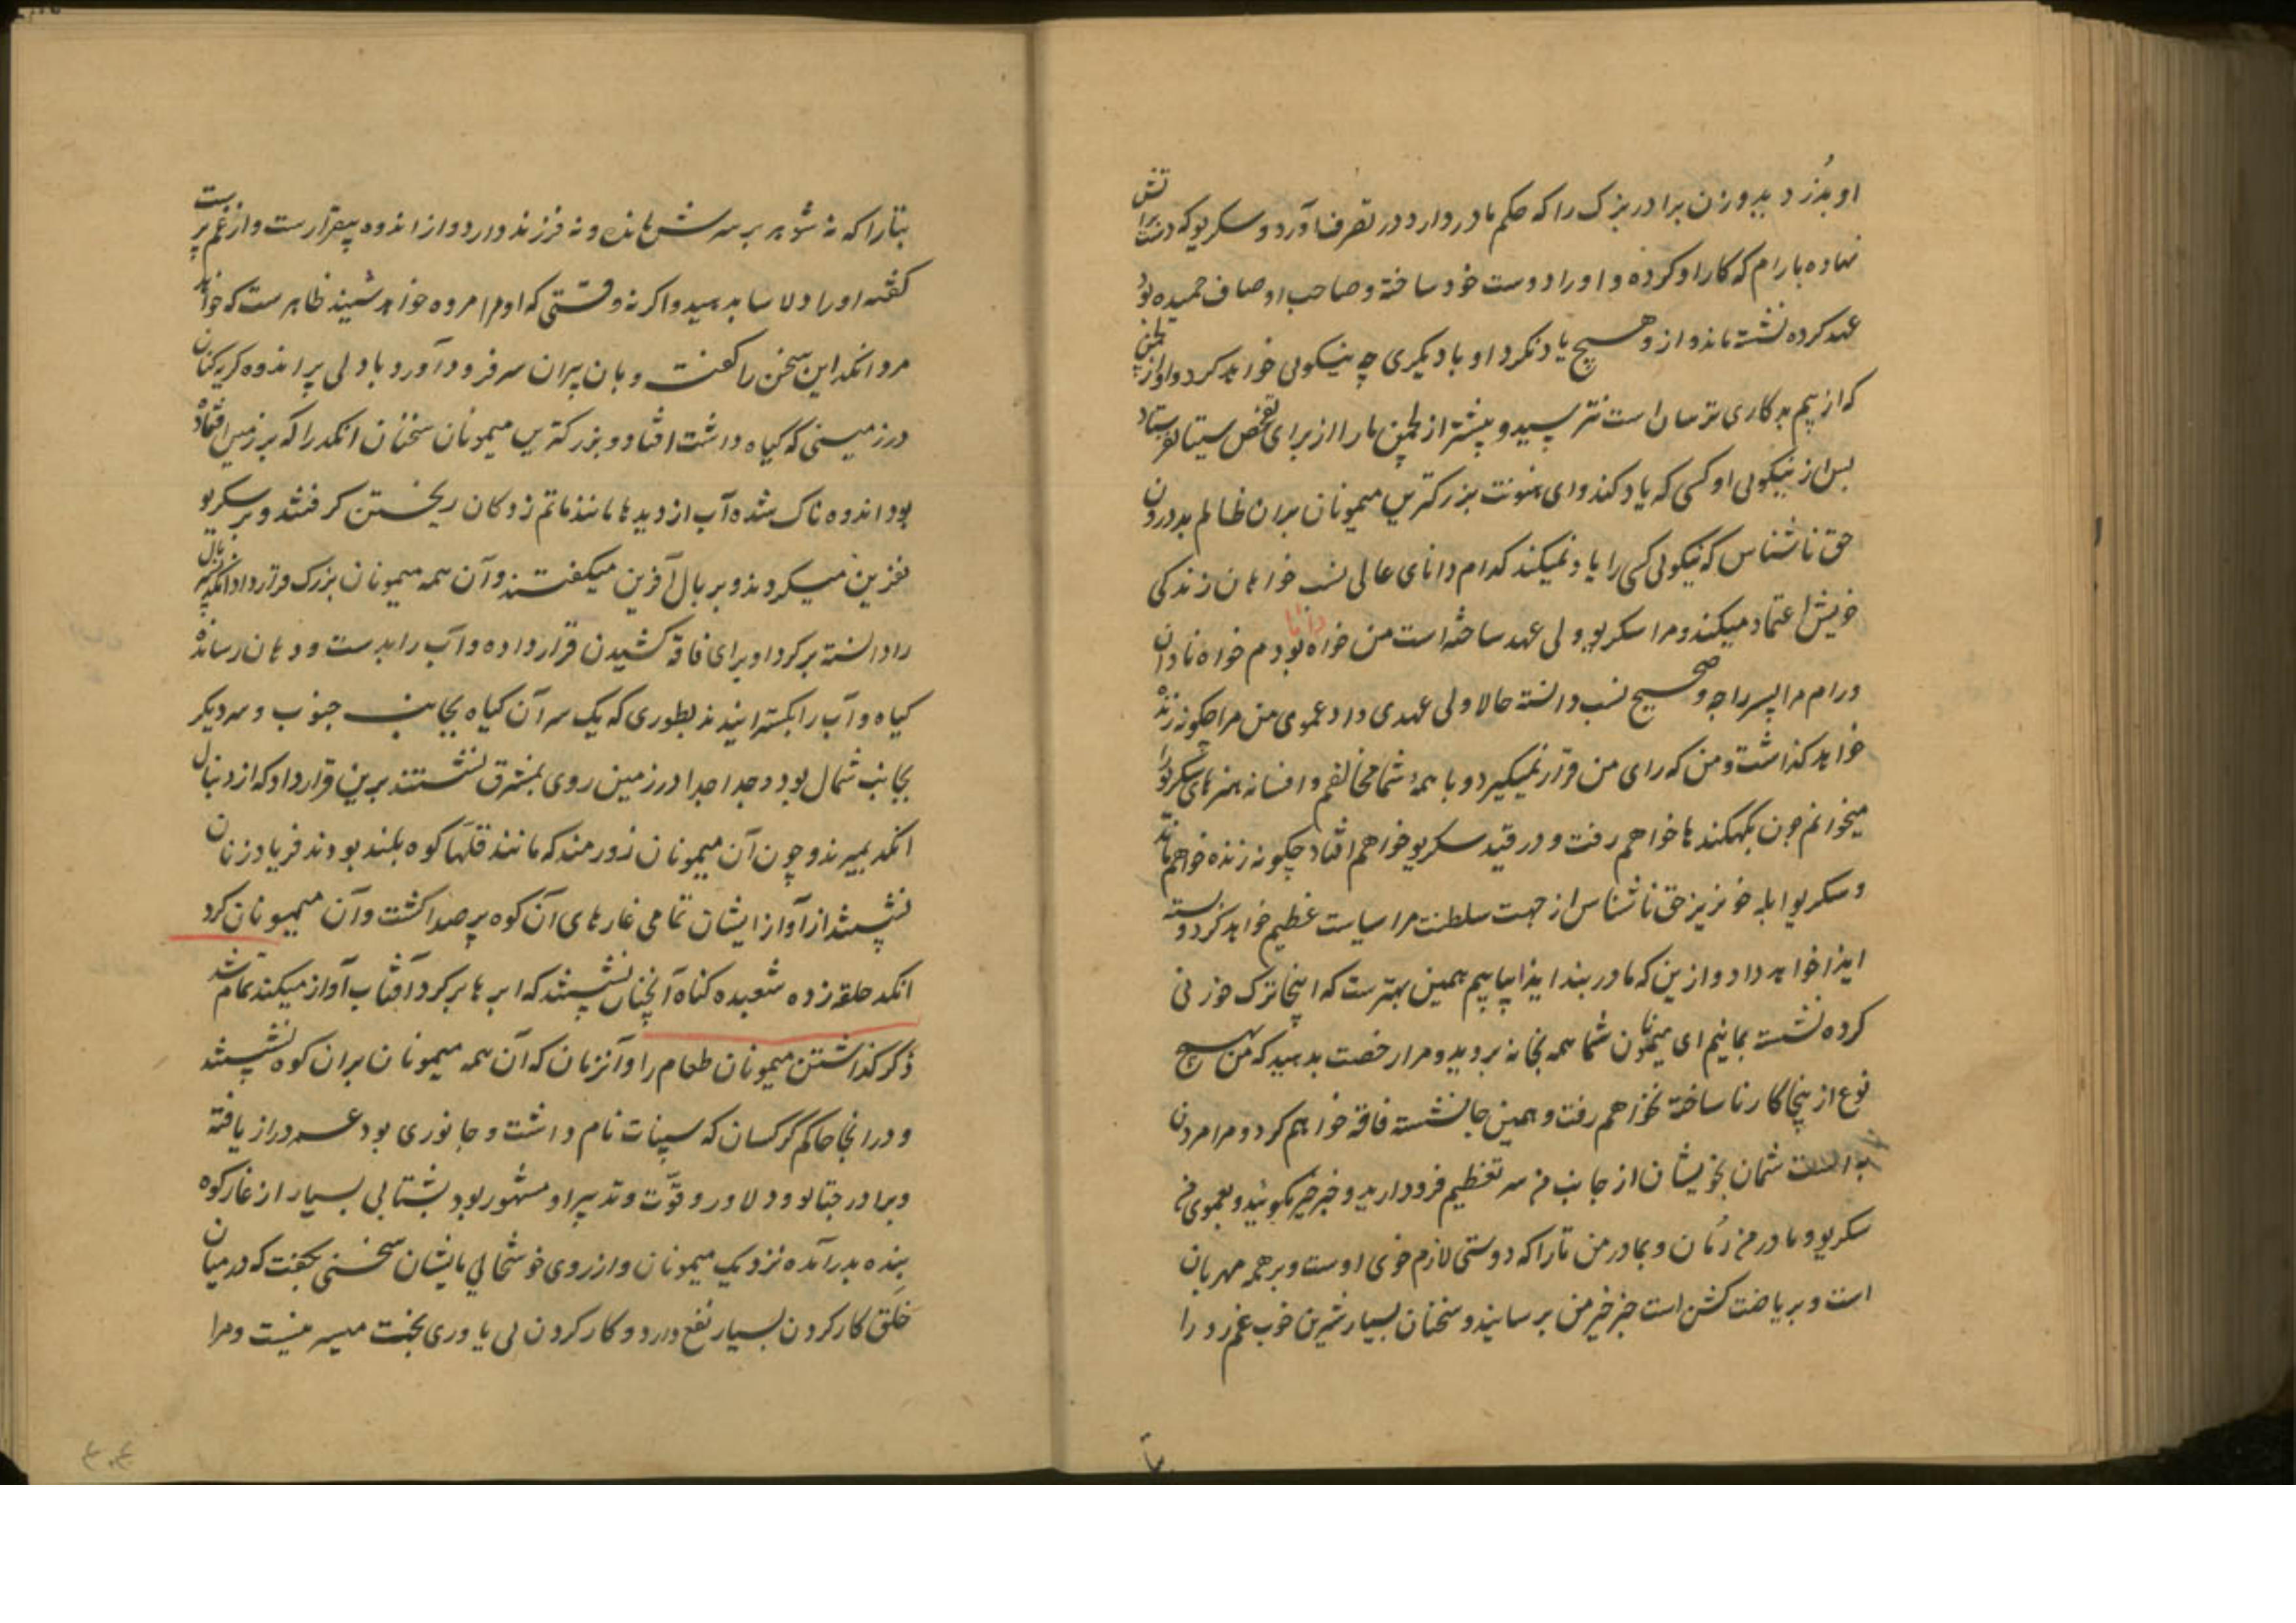 او بدزدد بدو زن برادر بزرک را که حکم مادر دارد در تصرف آورد و سکریو که دست آتش
نهاده با رام که کار او کرده و او را دوست خود ساخته و صاحب اوصاف حمیده بود
عهد کرده نشست ماند و ازو هیچ یاد نکرد او با دیکری چه نیکویی خواهد کرد و او از لچمن
که از بیم بدکاری ترسان است نترسید و پیشتر از لچمن ما را از برای تفحص سیتا نفرستاد
پس از نیکویی او کسی که یاد کند وای هنونت بزرکترین میمونان بران ظالم بد درون
حق ناشناس که نیکویی کسی را یاد نمیکند کدام دانای عالی نسب خواهان زندکی
خویش اعتماد میکند و مرا سکریو ولی عهد ساخته است من خواه دانا بودم خواه نادان
و رام مرا پسر راجه و صحیح نسب دانسته حالا ولی عهدی داد عموی من مرا چکونه زنده
خواهد کذاشت و من که رای من قرار نمیکیرد و با همهٔ شما مخالفم و افسانه هنرهای سکریو را
میخوانم چون بکهکندها خواهم رفت و در قید سکریو خواهم افتاد چکونه زنده خواهم ماند
و سکریو ابله خونریز حق ناشناس از جهت سلطنت مرا سیاست عظیم خواهد کرد و بسته
ایذا خواهد داد و ازین که ما در بند ایذا بیابیم همین بهترست که اینجا ترک خوردنی
کرده نشست بمانیم ای میمونان شما همه بخانه بروید و مرا رخصت بدهید که من بهیچ
نوع از ینجا کار نا ساخته نخواهم رفت و همین جا نشسته فاقه خواهم کرد و مرا مردن
به است شمان بخویشان از جانب من سر تعظیم فرود دارید و خبر خیر بکوئید و بعموی من
سکریو و مادر من رُمان و بمادر من تارا که دوستی لازم خوی اوست و بر همه مهربان
است و بریاضت کشن است خبر خیر من برسانید و سخنان بسیار شیرین خوب غم زد را
بتارا که نه شوهر بر سرش مانده و نه فرزند دارد و از اندوه بیقرارست و از غم پرست
کفته او را دلاسا بدهید و اکر نه وقتی که او مرا مرده خواهد شنید ظاهرست که خواهد
مرد انکد این سخن را کفت و بان پیران سر فرود آورد و با دلی پر اندوه کریه کنان
در زمینی که کیاه داشت افتاد و بزرکترین میمونان سخنان انکد را که بر زمین افتاده
بود اندوه ناک شده آب از دیدها مانند ماتم زدکان ریختن کرفتند و بر سکریو
نفرین میکردند و بر بال آفرین میکفتند و آن همه میمونان بزرک قرارداد انکد پسر بال
را دانسته بر کرد او برای فاقه کشیدن قرار داده و آب را بدست و دهان رسانده
کیاه و آب را بکسترانیدند بطوری که یک سر آن کیاه بجانب جنوب و سر دیکر
بجانب شمال بود و جدا جدا در زمین روی بمشرق نشستند برین قرارداد که از دنبال
انکد بمیرند و چون آن میمونان زورمند که مانند قلهای کوه بلند بودند فریاد زنان
نشستند از آواز ایشان تمامی غارهای آن کوه پر صدا کشت و آن میمونان کرد
انکد حلقه زده شعبده کناه آنچنان نشستند که ابرها بر کرد آفتاب آواز میکنند تمام شد
ذکر کذاشتن میمونان طعام را و آنزمان که آن همه میمونان بران کوه نشستند
و در انجا حاکم کرکسان که سپنات نام داشت و جانوری بود عمر دراز یافته
و برادر جتایو و دلاور و قوّت و تدبیر او مشهور بود بشتابی بسیار از غار کوه
بنده بدر آمده نزدیک میمونان و از روی خوشحالی بایشان سخنی بکفت که در میان
خلق کار کردن بسیار نفع دارد و کار کردن بی یاوری بخت میسر نیست و مرا